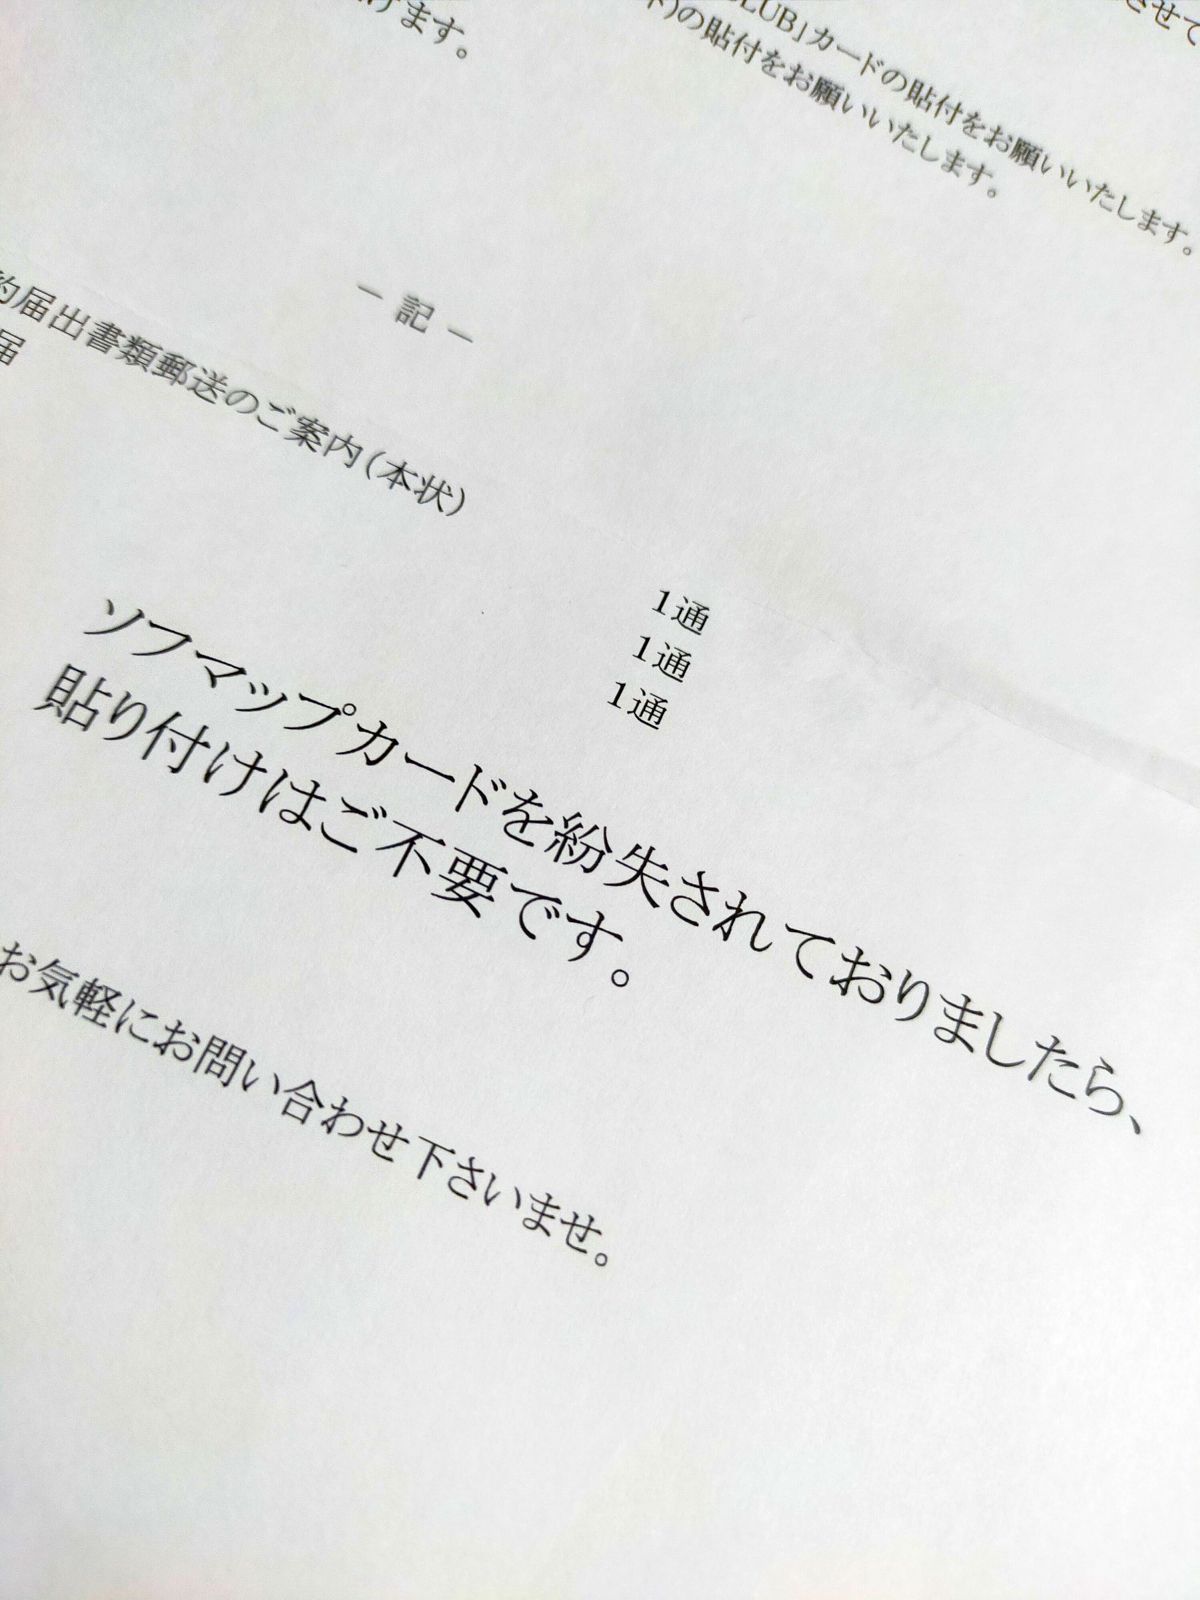 させて
CLUB」カードの貼付をお願いいたします。
ド)の貼付をお願いいたします。
けます。
－ 記 －
約届出書類郵送のご案内(本状)
届
1通
1通
1通
ソフマップカードを紛失されておりましたら、
貼り付けはご不要です。
お気軽にお問い合わせ下さいませ。